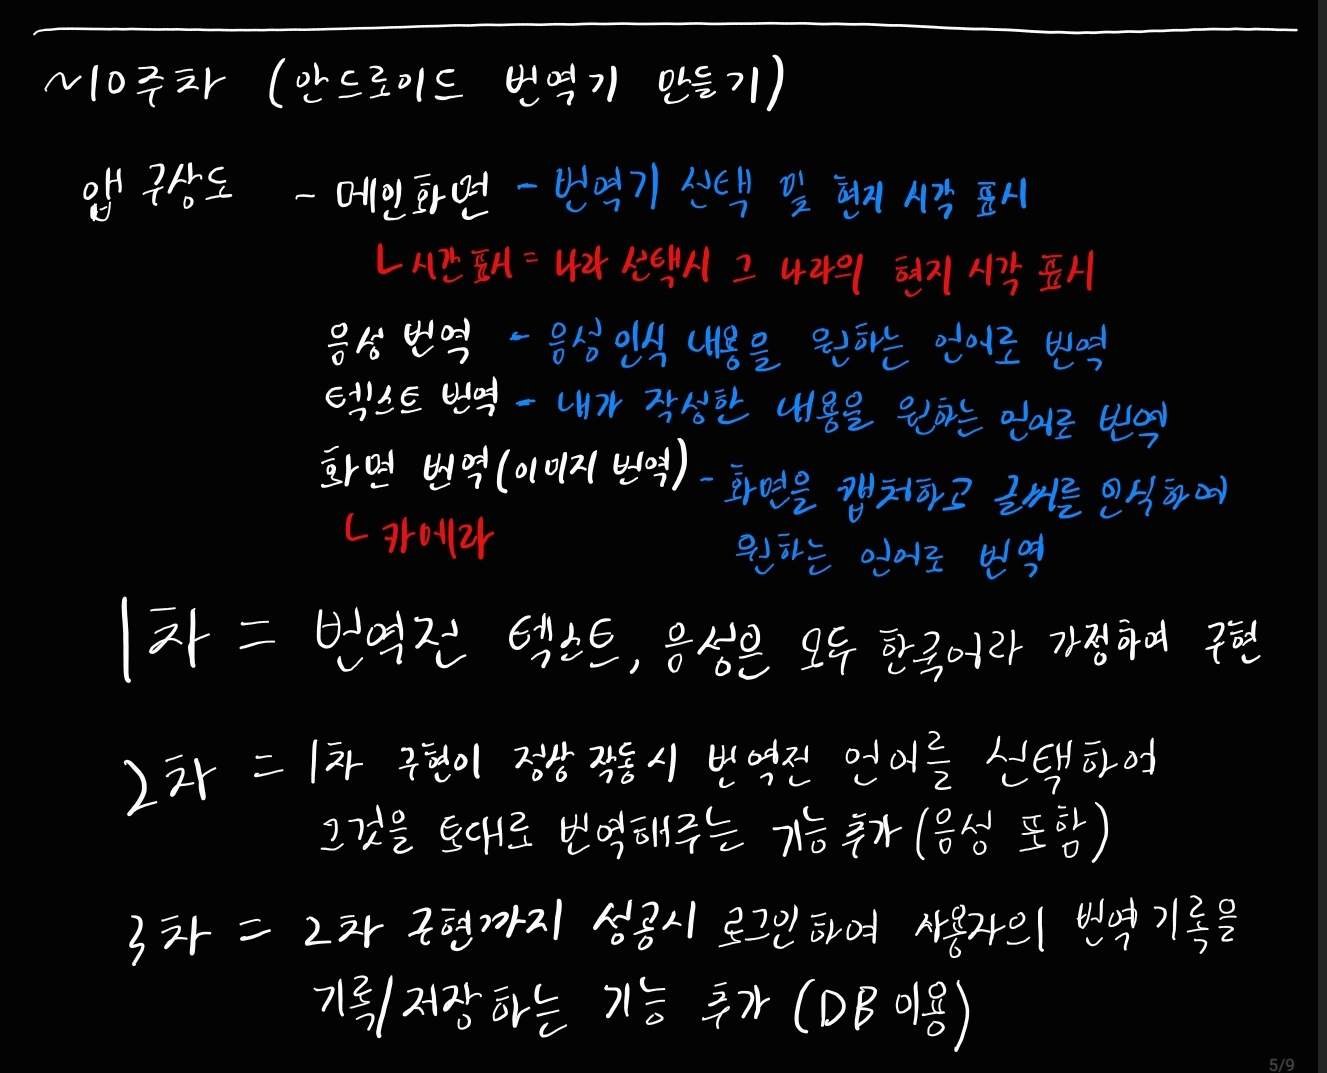 ~10주차 (안드로이드 번역기 만들기)
앱 구상도 - 메인화면 - 번역기 선택 및 현지 시각 표시
ㄴ시간표시 = 나라 선택시 그 나라의 현지 시각 표시
음성 번역 - 음성인식 내용을 원하는 언어로 번역
텍스트 번역 - 내가 작성한 내용을 원하는 언어로 번역
화면 번역(이미지 번역) - 화면을 캡처하고 글씨를 인식하여
ㄴ카메라 원하는 언어로 번역
1차 = 번역전 텍스트, 음성은 모두 한국어라 가정하여 구현
2차 = 1차 구현이 정상 작동시 번역전 언어를 선택하여
그것을 토대로 번역해주는 기능 추가 (음성 포함)
3차 = 2차 구현까지 성공시 로그인하여 사용자의 번역 기록을
기록/저장하는 기능 추가 (DB 이용)
5/9